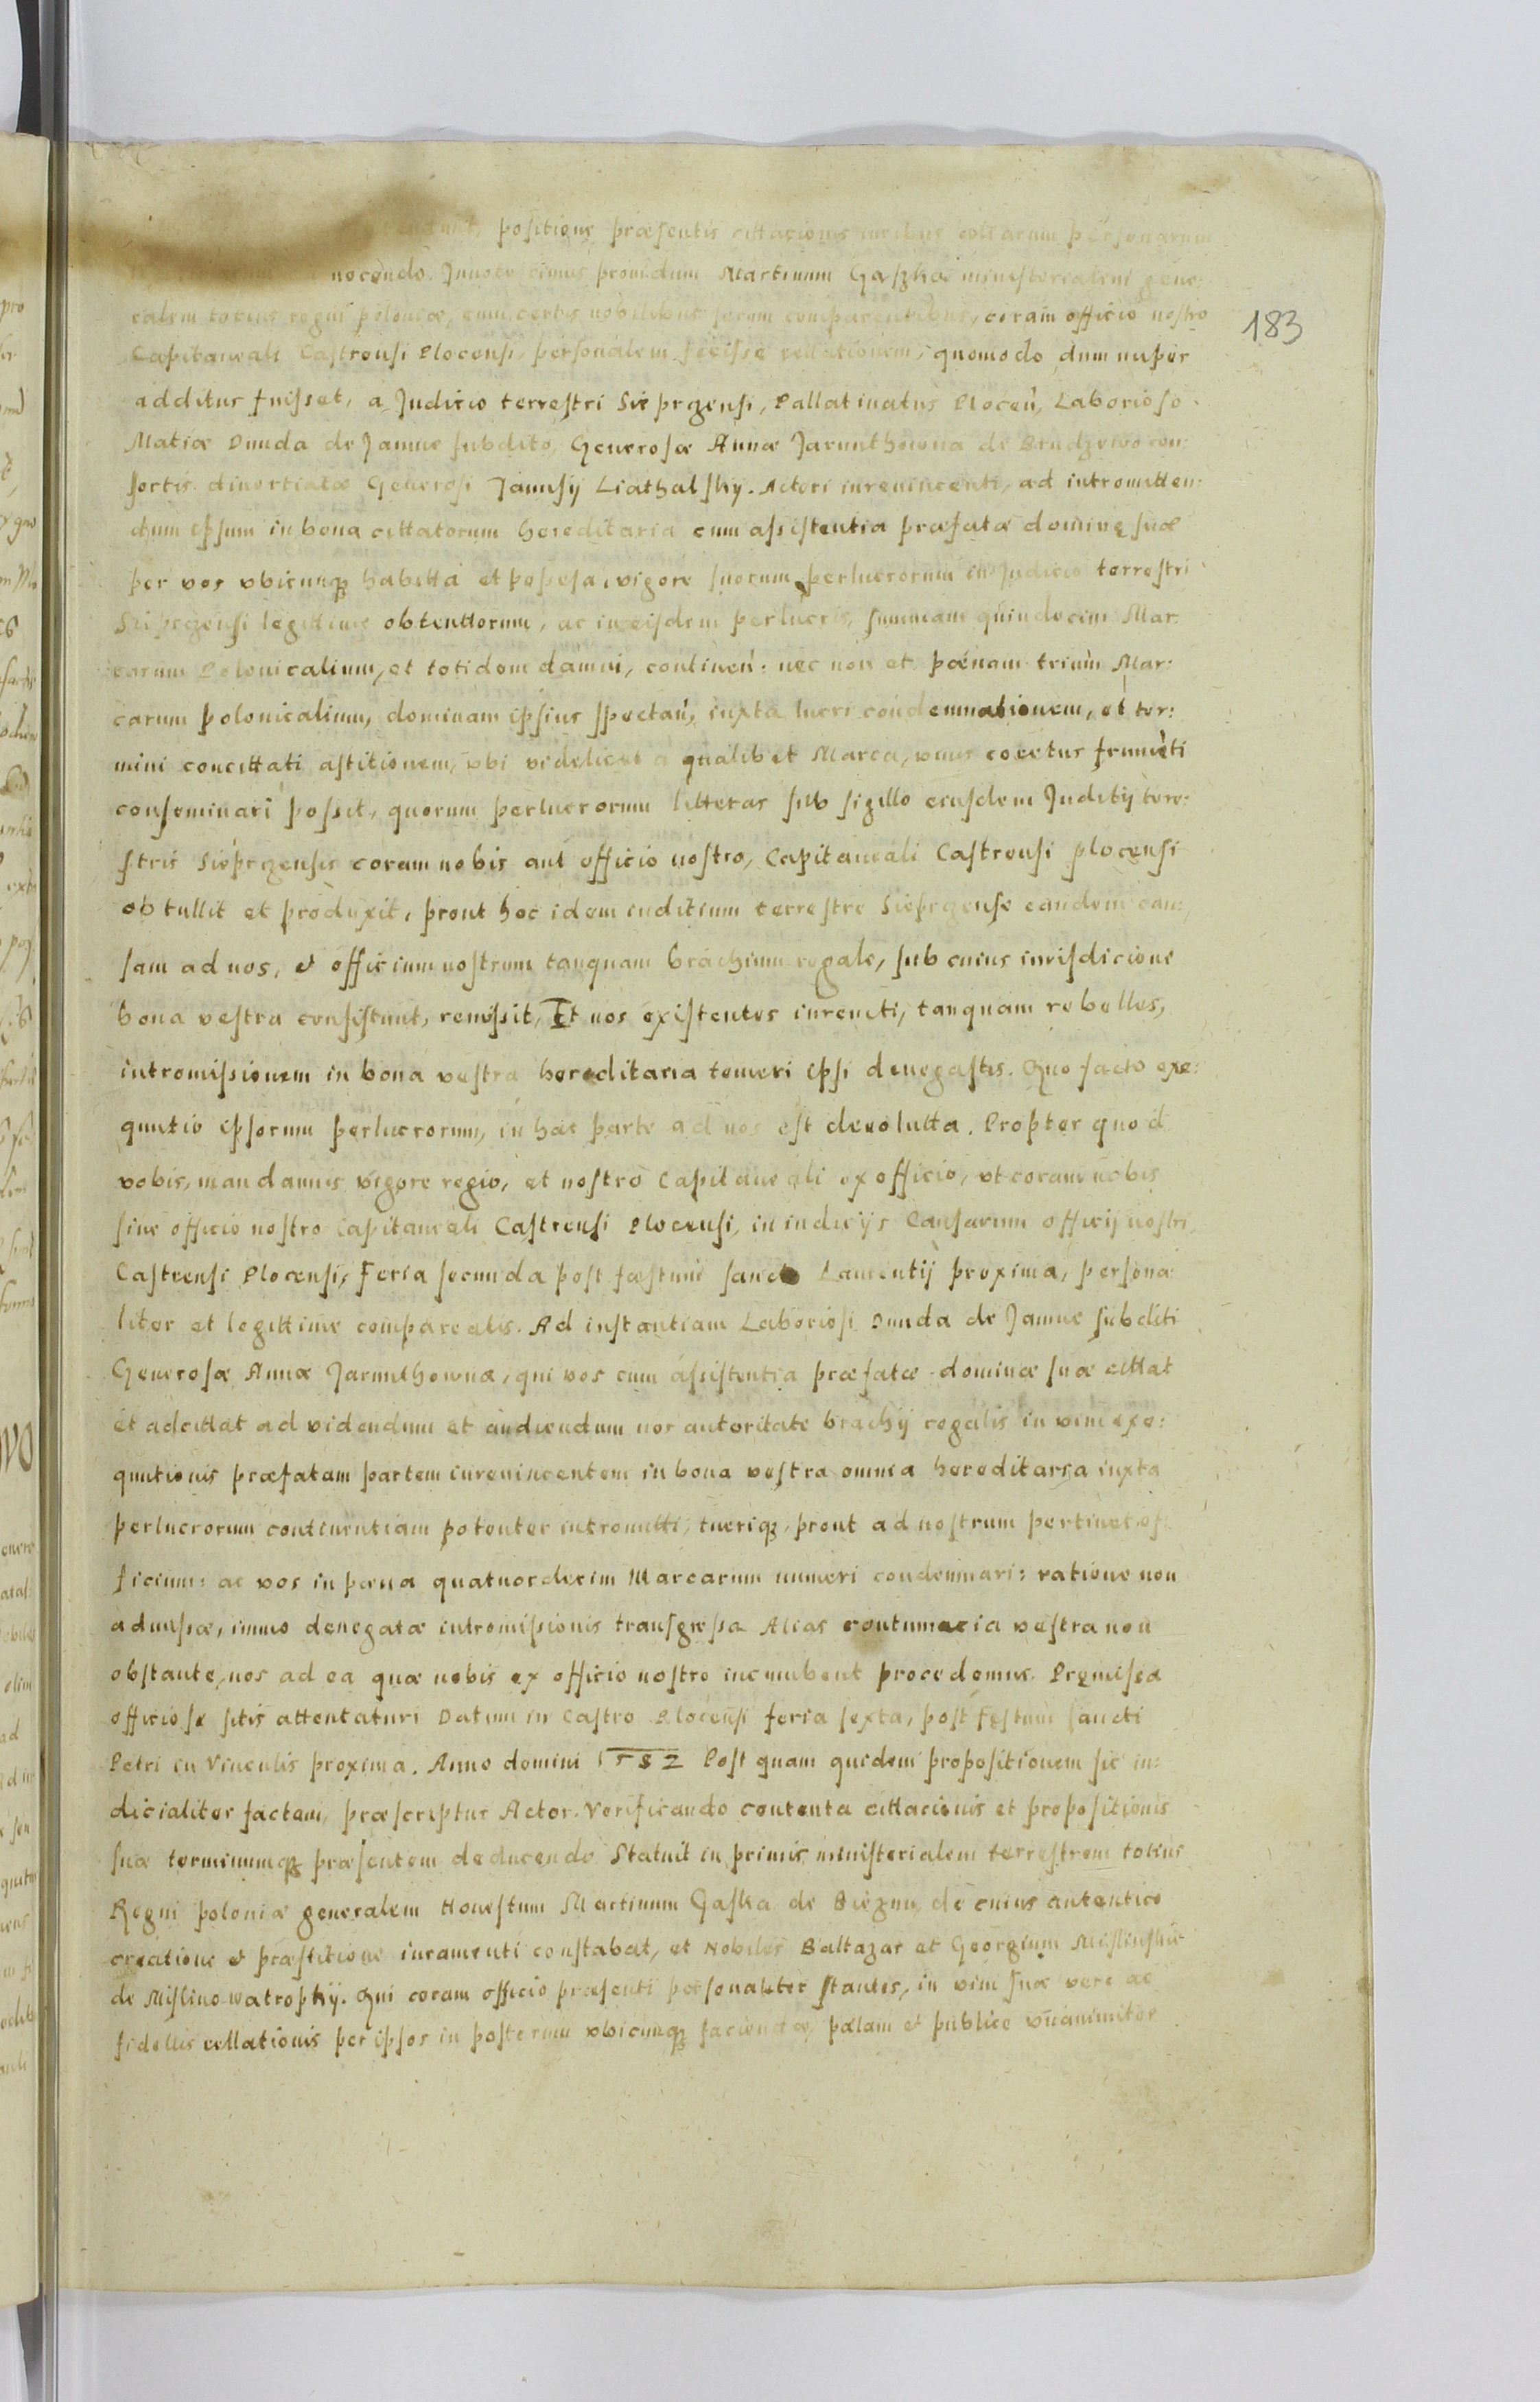 positione præsentis cittacionis personarum
nocendo. Innotescimus prouidum Martinum Gaszka ministerialem gene:
ralem tocius regni poloniæ, cum certis nobilibus secum comparentibus, coram officio nostro
Capitaneali Castrensi Plocensi, personalem fecisse rellationem, quomodo dum nuper
additus fuisset, a Judicio terrestri Sieprzensi, Pallatinatus Plocen, Laborioso
Matiæ Duuda de Jamne subdito, Generosæ Annæ Jarunthowna de Brudzewo con:
sortis diuortiatæ Generosi Janusij Liathalsky. Actori iureuincenti, ad intromitten:
dum ipsum in bona cittatorum hereditaria cum assistentia præfatæ dominę suæ
per vos vbicunq habitta et possessa, vigore suorum perlucrorum in Judicio terrestri
Sieprzensi legittime obtenttorum, ac in eisdem perlucris, summam quindecim Mar
carum Polonicalium, et totidem damni, continen: nec non et pænam trium Mar:
carum polonicalium, dominam ipsius spectan, iuxta lucri condemnationem, et ter:
mini concittati astitionem, vbi videlicet a qualibet Marca, vnus coretus frumēti
conseminari possit, quorum perlucrorum litteras sub sigillo eiusdem Juditij terre:
stris Sieprzensis coram nobis aut officio nostro, Capitaneali Castrensi plocensi
obtullit et produxit, prout hoc idem iuditium terrestre Sieprzense eandem cau:
sam ad nos, et officium nostrum tanquam brachium regale, sub cuius iurisdicione
bona vestra consistunt, remissit, Et vos existentes iureuicti, tanquam rebelles,
intromissionem in bona vestra hereditaria temeri ipsi denegastis. Quo facto exe:
qutio ipsorum perlucrorum, in hac parte ad nos est deuolutta. Propter quod
vobis, mandamus vigore regio, et nostro Capitaneali ex officio, vt coram nobis
siue officio nostro Capitaneali Castrensi Plocensi, in iudicijs Causarum officij nostri
Castrensi Plocensi, Feria secunda post fæstum sancti Laurentij proxima, persona
liter et legittime compareatis. Ad instantiam Laboriosi Duuda de Jamne subditi
Generosæ Annæ Jarunthownæ, qui vos cum assistentia præfatæ dominæ suæ cittat
et adcittat ad videndum et audiendum nos autoritate brachij regalis in vim exe:
qutionis præfatam partem iureuincentem in bona vestra omnia hereditaria iuxta
perlucrorum continentiam potenter intromitti, tueriq, prout ad nostrum pertinet of:
ficium: ac vos in pæna quatuordecim Marcarum numeri condemnari: ratione non
admissæ, immo denegatæ intromissionis transgressa Alias contumacia vestra non
obstante, nos ad ea quæ nobis ex officio nostro incumbent procedemus. Pręmissa
officiose sitis attentaturi Datum in Castro Plocensi feria sexta, post Fęstum sancti
Petri in Vinculis proxima. Anno domini 1582 Post quam quidem propositionem sic iu:
dicialiter factam, præscriptus Actor. Verificando contenta cittacionis et propositionis
suæ terminumq præsentem deducendo Statuit in primis ministerialem terrestrem totius
Regni poloniæ generalem Honestum Martinum Gaska de Biezun, de cuius autentico
creatione et præstitione iuramenti constabat, et Nobiles Baltazar et Georgium Mislinskie
de Mislino watrophy. Qui coram officio præsenti personaliter stantes, in vim suæ vere ac
fidellis rellationis per ipsos in posterum vbicunq faciendæ, palam et publice vnanimiter
183